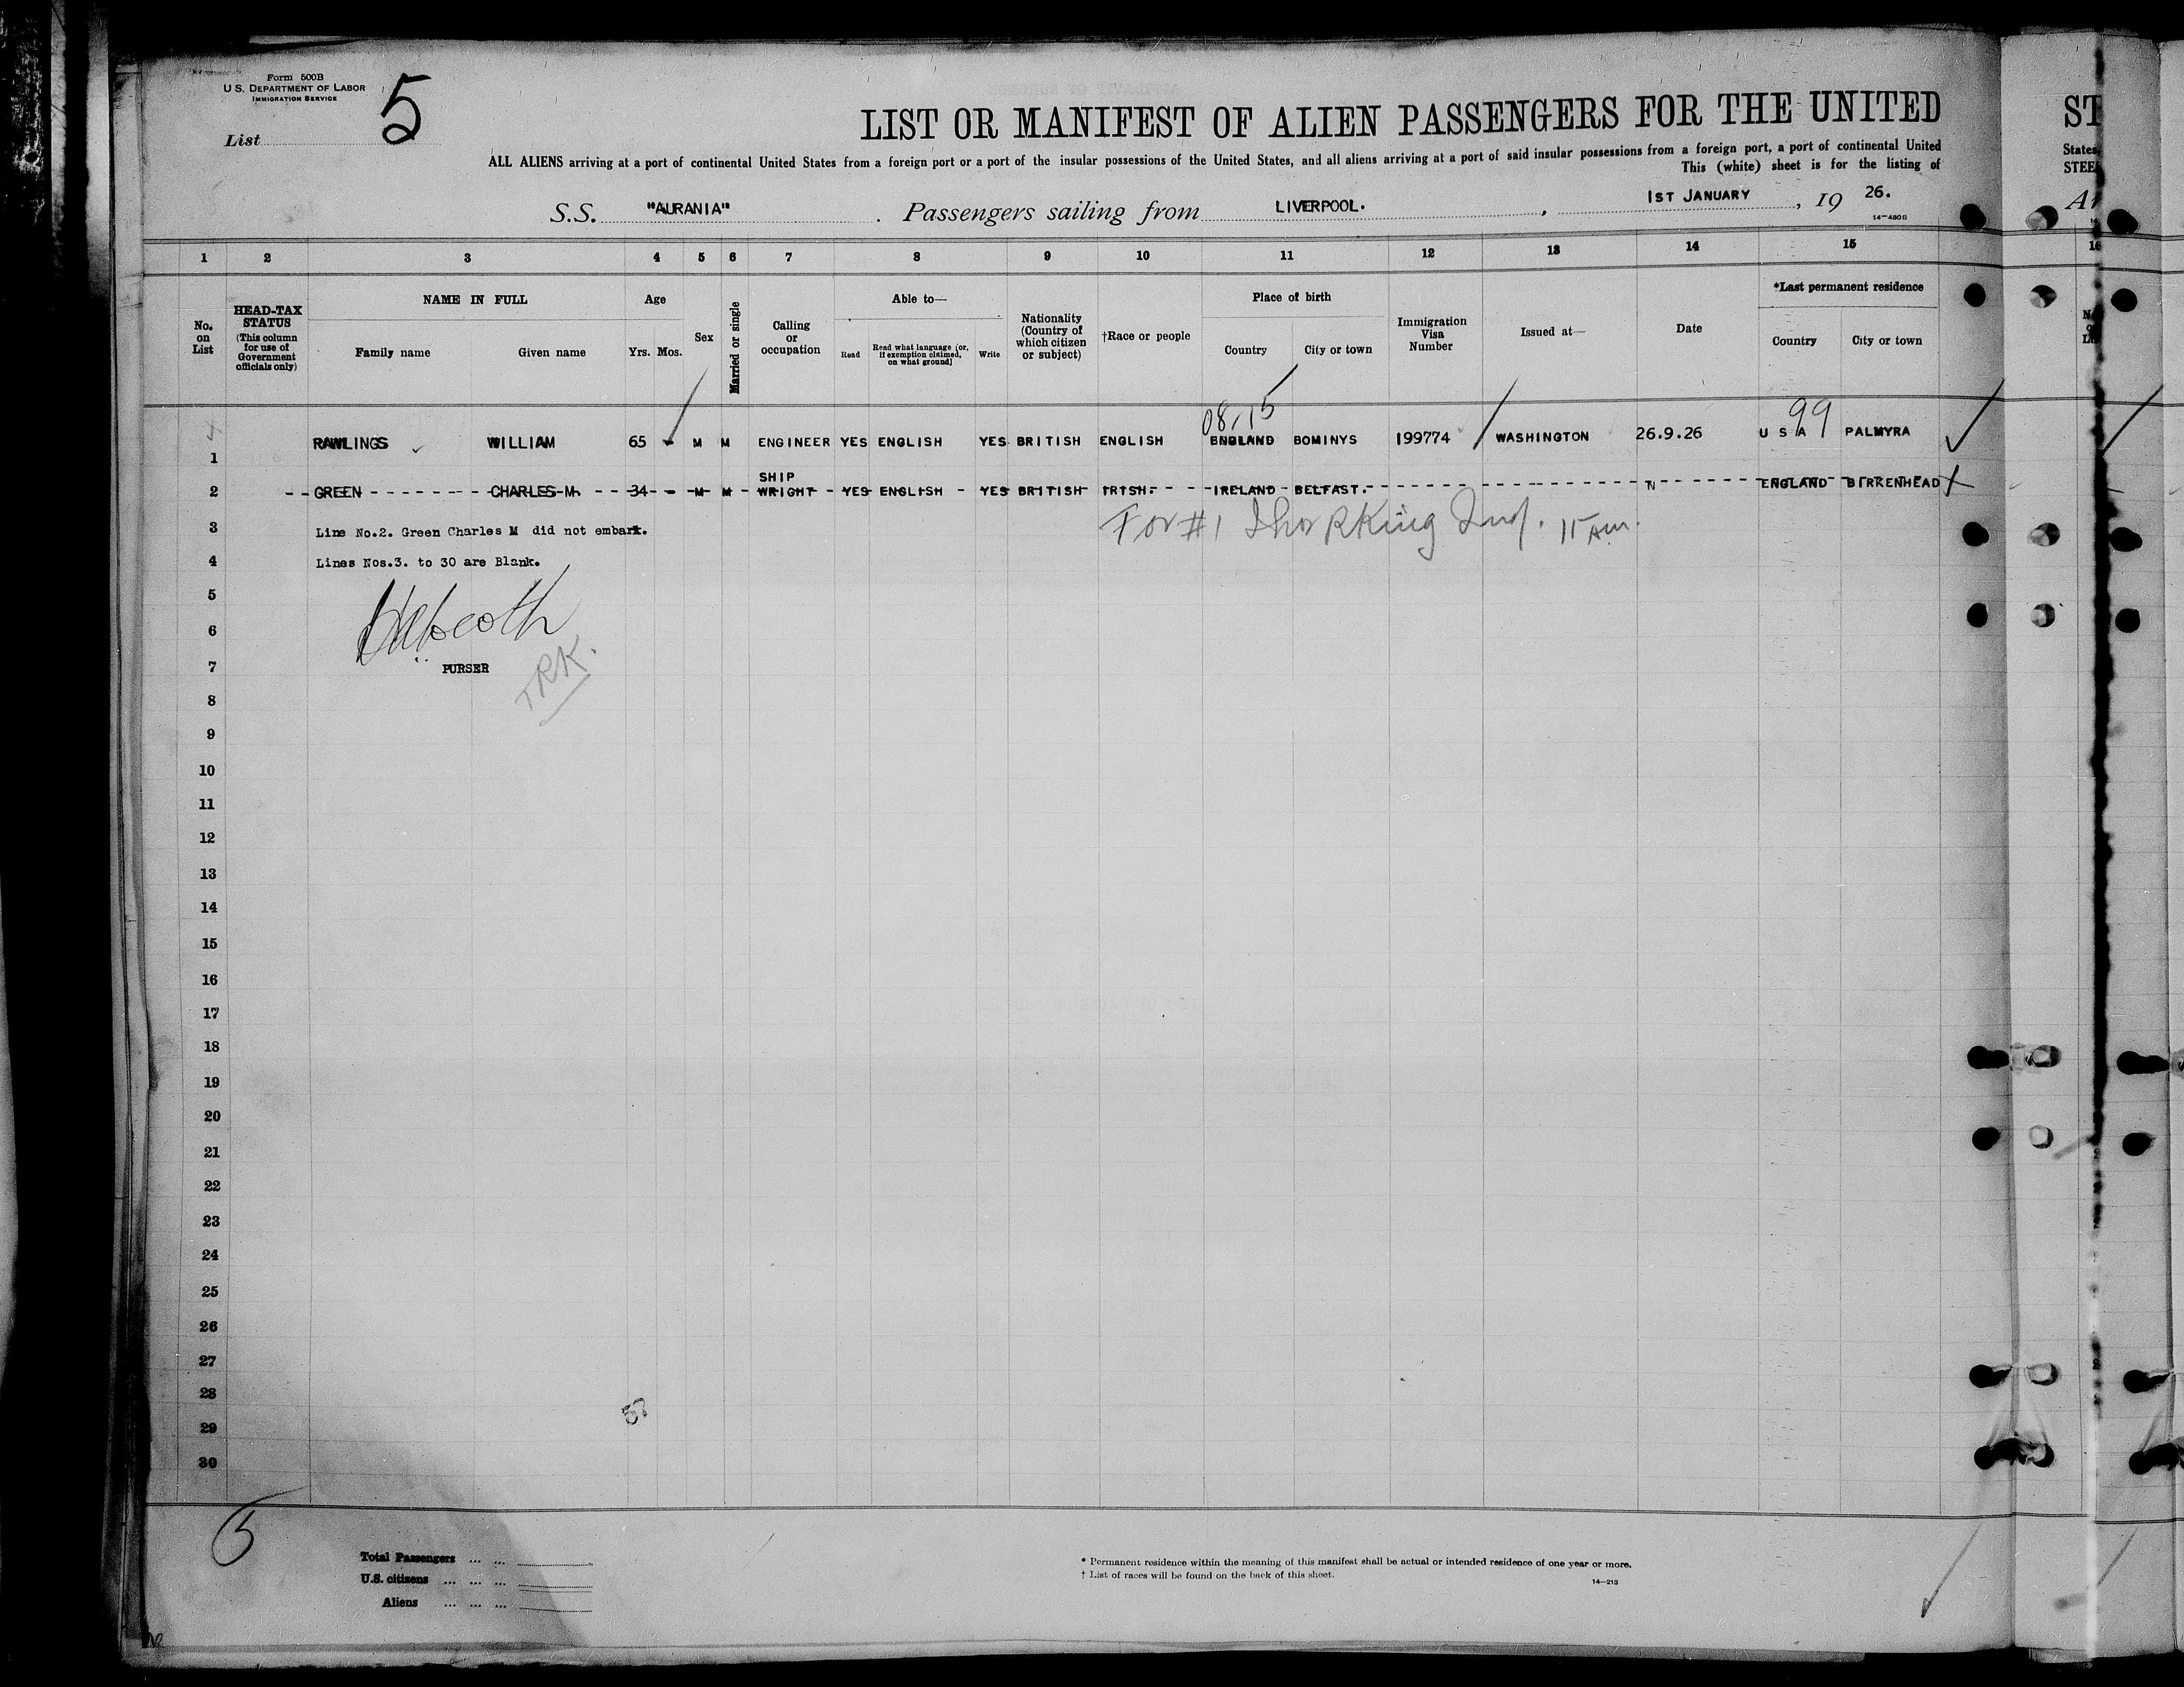 Form 500B
U. S. DEPARTMENT OF LABOR
IMMIGRATION SERVICE
List 5
LIST OR MANIFEST OF ALIEN PASSENGERS FOR THE UNITED
ALL ALIENS arriving at a port of continental United States from a foreign port or a port of the insular possessions of the United States, and all aliens arriving at a port of said insular possessions from a foreign port, a port of continental United
This (white) sheet is for the listing of
S.S. "AURANIA". Passengers sailing from LIVERPOOL. , 1ST JANUARY , 19 26.
14-480B
1 2 3 4 5 6 7 8 9 10 11 12 13 14 15
No. on List
HEAD-TAX STATUS (This column for use of Government officials only)
NAME IN FULL
Family name Given name
Age
Yrs. Mos.
Sex
Married or single
Calling or occupation
Able to—
Read
Read what language [or, if exemption claimed, on what ground]
Write
Nationality (Country of which citizen or subject)
†Race or people
Place of birth
Country City or town
Immigration Visa Number
Issued at—
Date
*Last permanent residence
Country City or town
08,15 99
1 RAWLINGS WILLIAM 65 - M M ENGINEER YES ENGLISH YES BRITISH ENGLISH ENGLAND BOMINYS 199774 WASHINGTON 26.9.26 U S A PALMYRA
2 GREEN CHARLES M. 34 - M M SHIP WRIGHT YES ENGLISH YES BRITISH IRISH. IRELAND BELFAST. ENGLAND BIRKENHEAD
3 Line No.2. Green Charles M did not embark.
For #1
4 Lines Nos.3. to 30 are Blank.
5
6
7 PURSER
TRK.
8
9
10
11
12
13
14
15
16
17
18
19
20
21
22
23
24
25
26
27
28
57
29
30
5
Total Passengers ... ...
U.S. citizens ... ... ...
Aliens ... ... ...
* Permanent residence within the meaning of this manifest shall be actual or intended residence of one year or more.
† List of races will be found on the back of this sheet.
14-213
ST
States
STEE